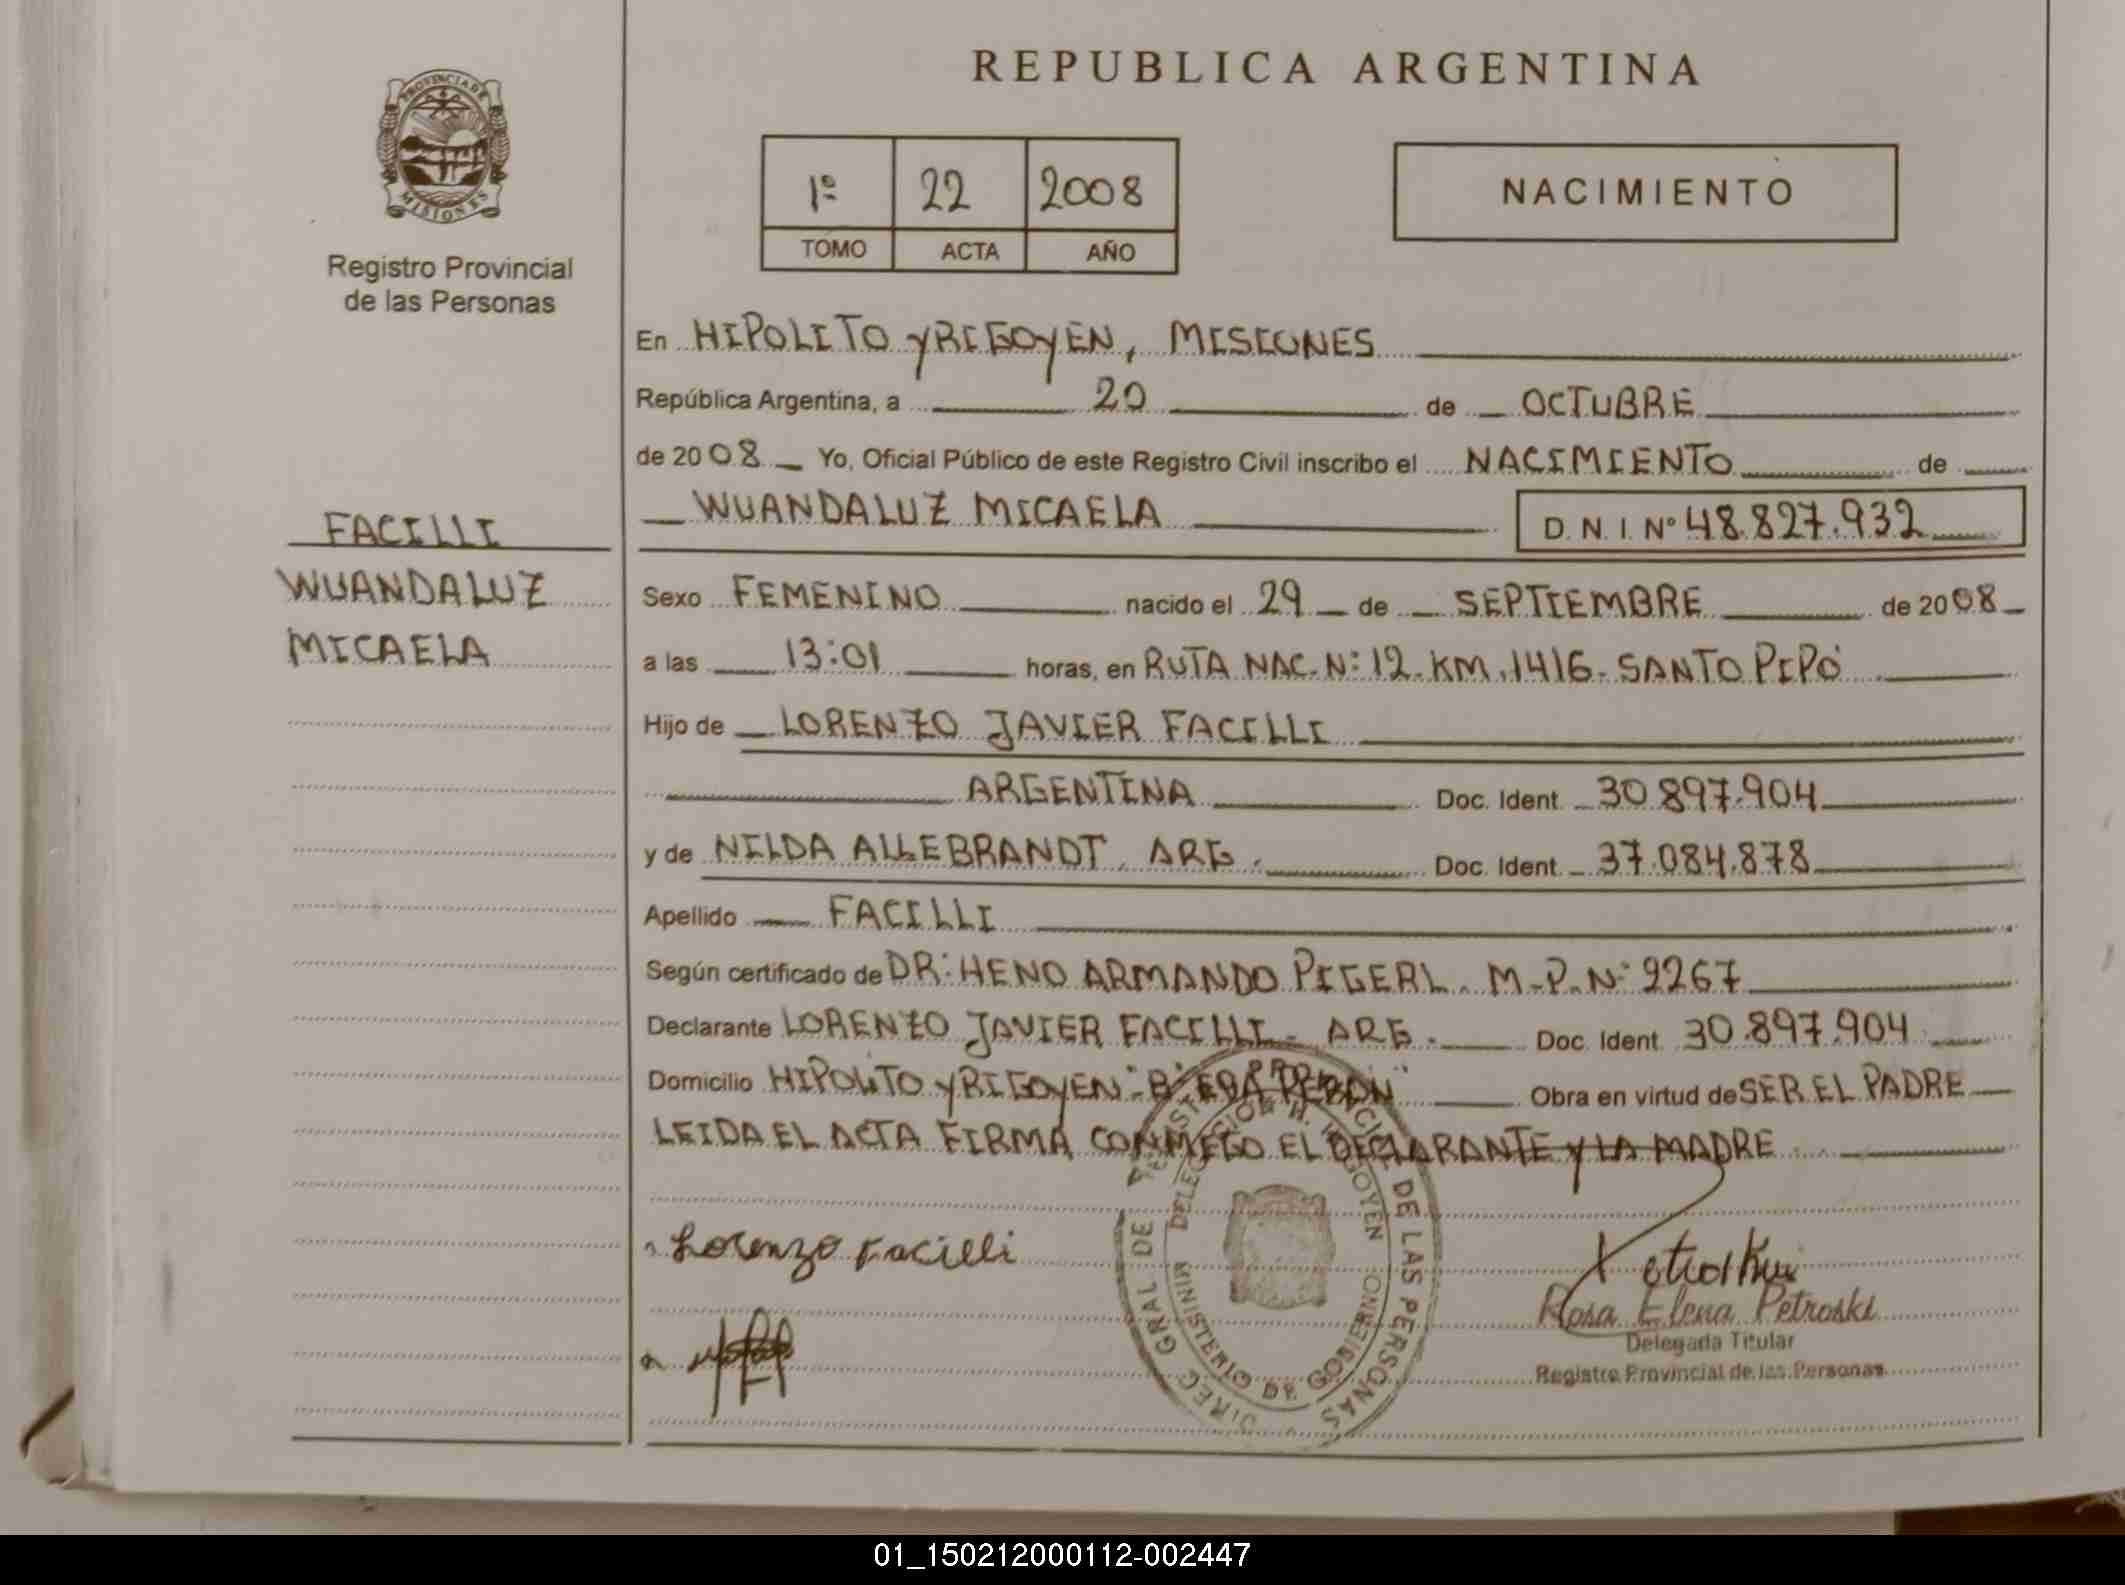 REPUBLICA ARGENTINA
PROVINCIA DE MISIONES
Registro Provincial
de las Personas
1º 22 2008
TOMO ACTA AÑO
NACIMIENTO
En HIPOLITO YRIGOYEN, MISIONES
República Argentina, a 20 de OCTUBRE
de 2008 Yo, Oficial Público de este Registro Civil inscribo el NACIMIENTO de
WUANDALUZ MICAELA D. N. I. Nº 48.827.932
FACILLI
WUANDALUZ
MICAELA
Sexo FEMENINO nacido el 29 de SEPTIEMBRE de 2008
a las 13:01 horas, en RUTA NAC. Nº 12. KM. 1416. SANTO PIPÓ
Hijo de LORENZO JAVIER FACILLI
ARGENTINA Doc. Ident. 30.897.904
y de NILDA ALLEBRANDT. ARG. Doc. Ident. 37.084.878
Apellido FACILLI
Según certificado de DR: HENO ARMANDO PIGERL. M.P.Nº 2267
Declarante LORENZO JAVIER FACILLI - ARG. Doc. Ident. 30.897.904
Domicilio HIPOLITO YRIGOYEN - Bº "EVA PERON" Obra en virtud de SER EL PADRE
LEIDA EL ACTA FIRMA CONMIGO EL DECLARANTE Y LA MADRE
Lorenzo Facilli
DIREC. GRAL DE DE LAS PERSONAS
DELEGACION H. YRIGOYEN
MINISTERIO DE GOBIERNO
Rosa Elena Petroski
Delegada Titular
Registro Provincial de las Personas
01_150212000112-002447